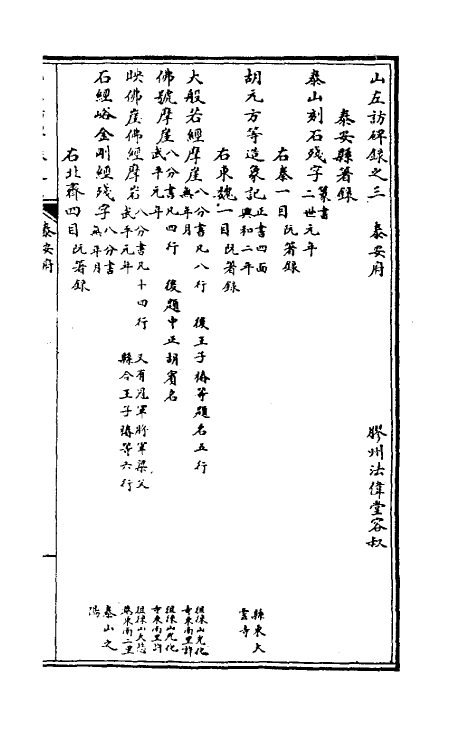 山左訪碑錄之三 泰安府 膠州法偉堂容叔
泰安縣著錄
泰山刻石殘字 篆書 二世元年
右秦一目阮著錄
胡元方等造象記 正書四面 興和二年 縣東大雲寺
右東魏一目阮著錄
大般若經摩崖 八分書凡八行 無年月 後王子椿等題名五行 徂徠山光化寺東南里許
佛號摩崖 八分書凡四行 武平元年 後題中正胡賓名 徂徠山光化寺東南里許
映佛崖佛經摩岩 八分書凡十四行 武平元年 又有冠軍將軍梁父縣令王子椿等六行 徂徠山大悲菴東南二里
石經峪金剛經殘字 八分書 無年月 泰山之陽
右北齊四目阮著錄
泰安府